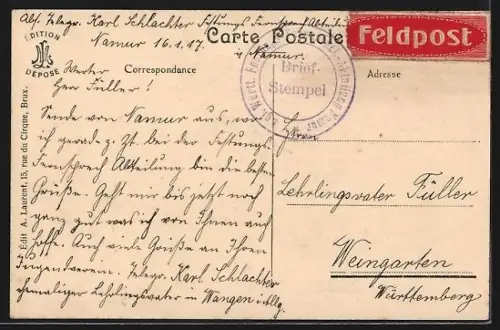 Abs. Telegr. Karl Schlachter Festungs Fernsprech Abteilung
Namur 16.1.17. in Namur.
EDITION
DÉPOSÉ
Carte Postale
Feldpost
Correspondance
Adresse
Brief-
Stempel
Werter
Herr Füller!
Sende von Namur aus, wo
ich gerade z. Zt. bei der Festungs-
Fernsprech Abteilung bin die besten
Grüße. Geht mir bis jetzt noch
ganz gut was ich von Ihnen auch
hoffe. Auch viele Grüße an Ihren
Jugendverein. Telegr. Karl Schlachter
ehemaliger Lehrlingsvater in Wangen i. Allg.
Herrn
Lehrlingsvater Füller
Weingarten
Württemberg
Édit A. Laurent, 15, rue du Cirque, Brux.